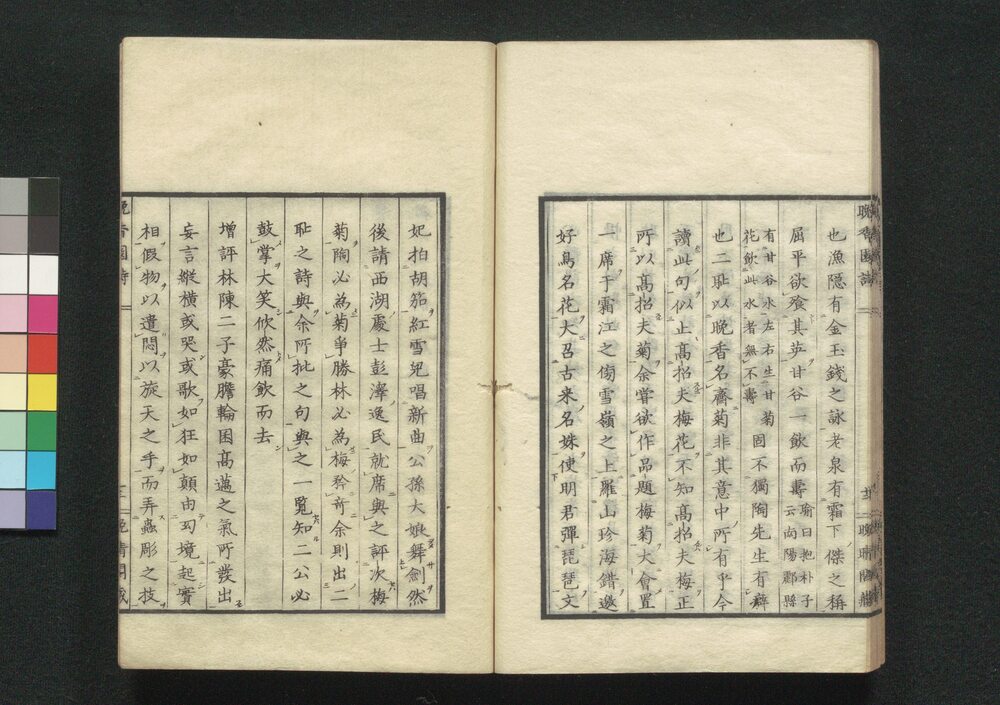 也漁隠有金玉錢之詠老泉有霜下傑之稱
屈平欲飱其英甘谷一飲而壽瑜曰抱朴子云南陽酈縣
有甘谷水左右生甘菊花飲此水者無不壽固不獨陶先生有癖
也二耻以晩香名齋菊非其意中所有乎今
讀此句似止髙招夫梅花不知髙招夫梅正
所以髙招夫菊余嘗欲作品題梅菊大會置
一席于霜江之傍雪嶺之上羅山珍海錯邀
好鳥名花大召古来名姝使明君彈琵琶文
妃拍胡笳紅雪兒唱新曲公孫大娘舞劍然
後請西湖處士彭澤逸民就席與之評次梅
菊陶必為菊爭勝林必為梅矜竒余則出二
耻之詩與余所批之句與之一覧知二公必
鼓掌大笑欣然痛飲而去
增評林陳二子豪膽輪囷髙邁之氣所發出
妄言縱横或哭或歌如狂如顛由幻境起實
相假物以遣悶以旋天之手而弄蟲彫之技